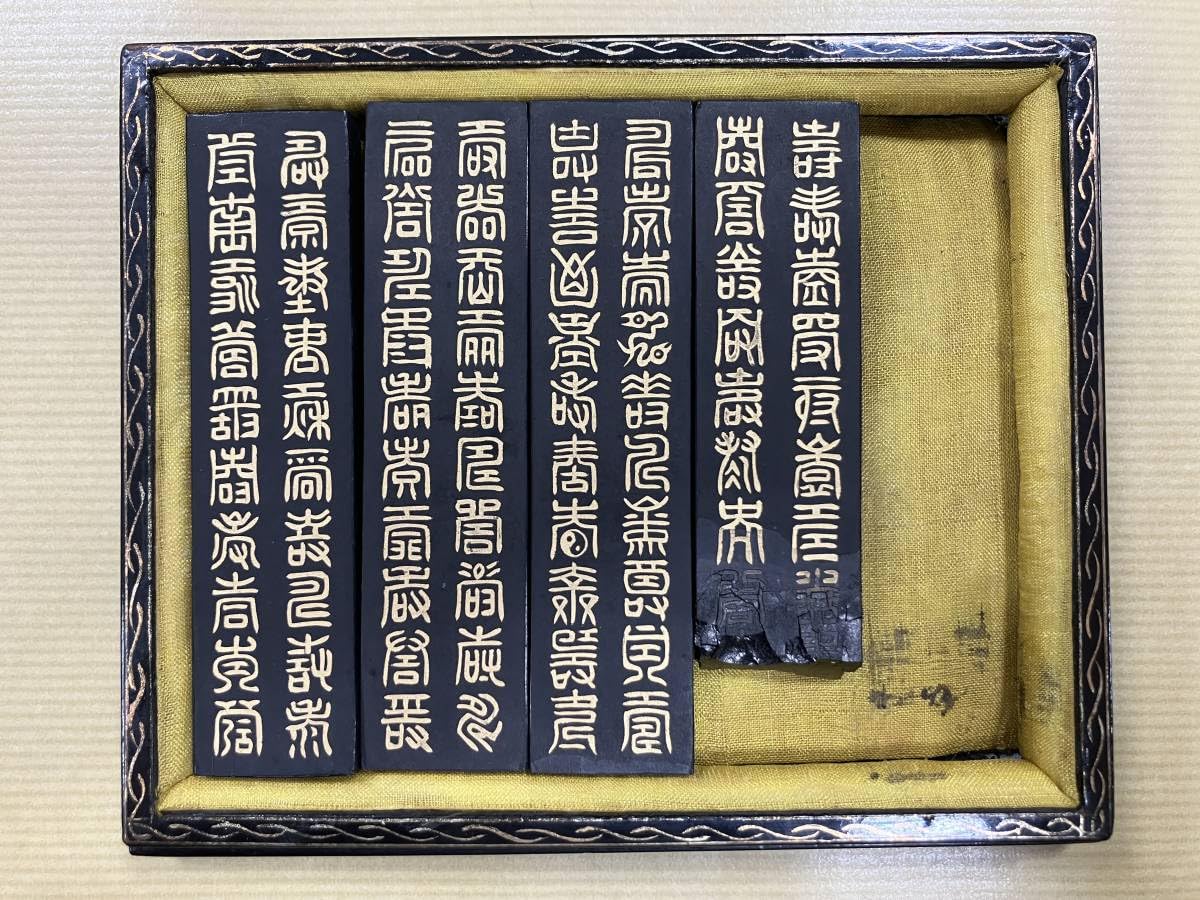 壽壽壽壽壽壽壽
壽壽壽壽壽壽壽
壽壽壽壽壽壽壽壽壽壽
壽壽壽壽壽壽壽壽壽壽
壽壽壽壽壽壽壽壽壽壽
壽壽壽壽壽壽壽壽壽壽
壽壽壽壽壽壽壽壽壽壽
壽壽壽壽壽壽壽壽壽壽